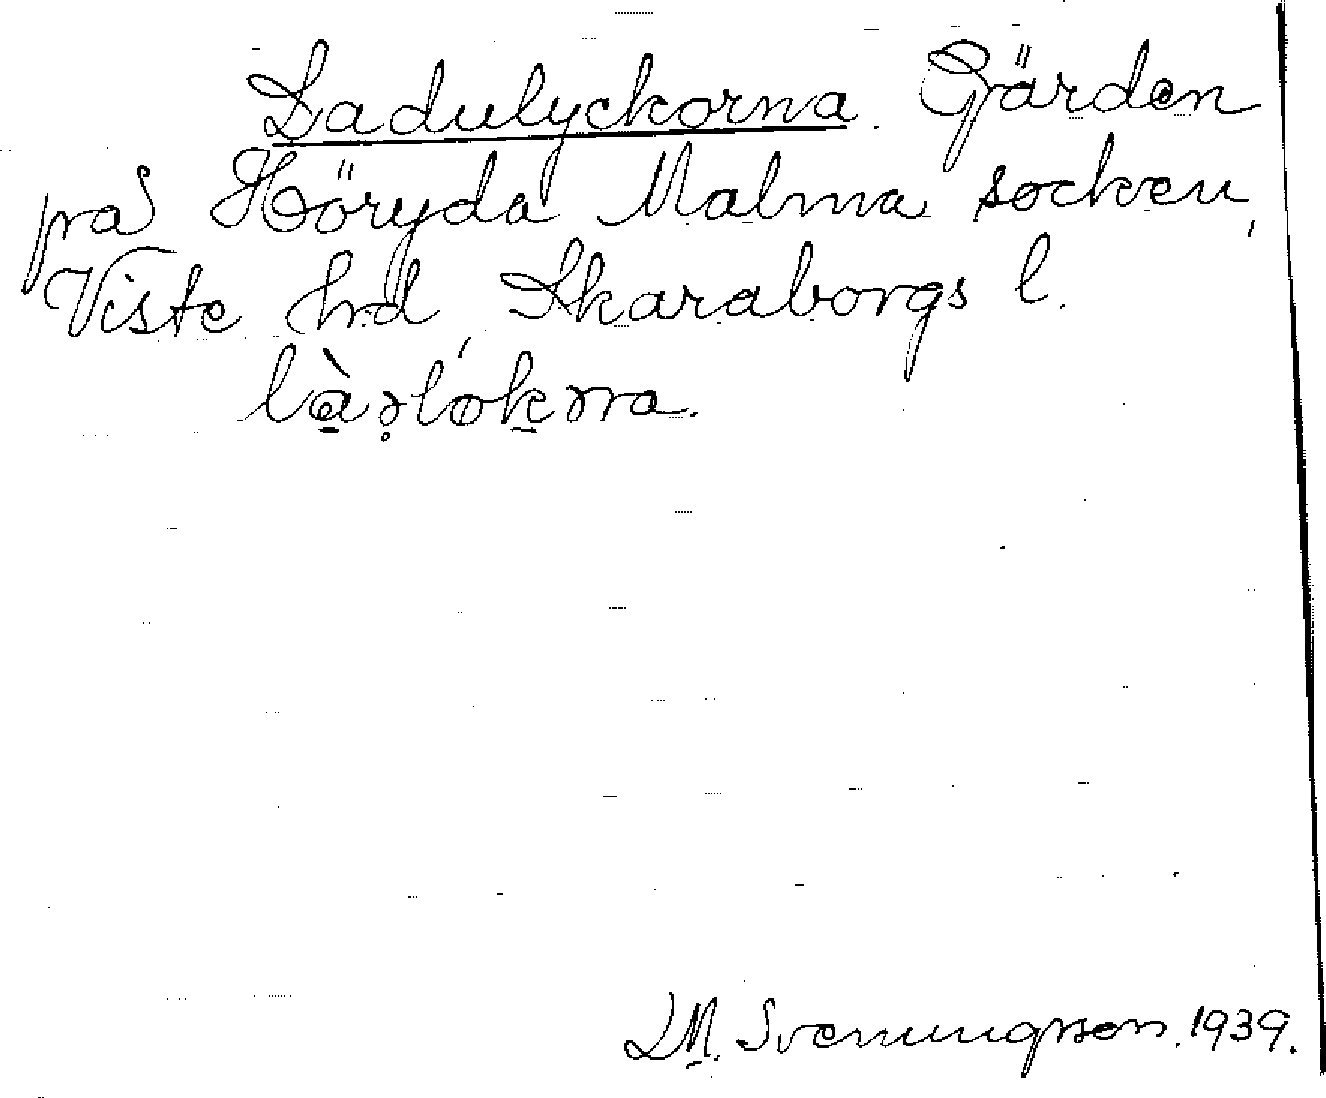 Ladulyckorna. Gärden
på Höryda Malma socken,
Viste hrd, Skaraborgs l.
Svenungsson. 1939.